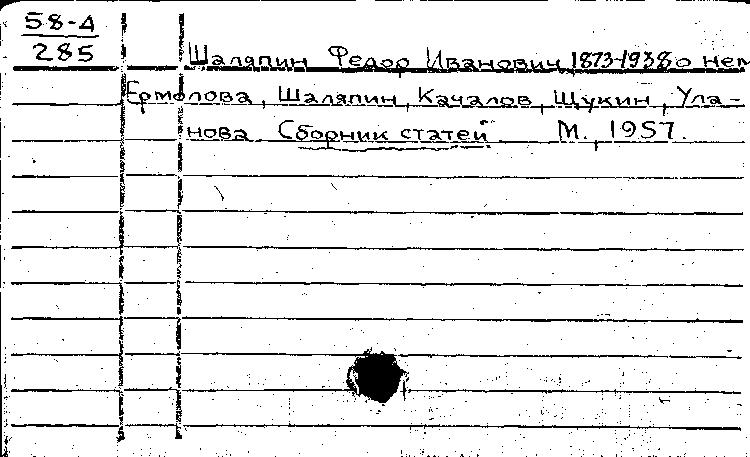 58-4
285
Шаляпин Федор Иванович, 1873-1938 о нем
Ермолова, Шаляпин, Качалов, Щукин, Ула-
нова. Сборник статей М., 1957.